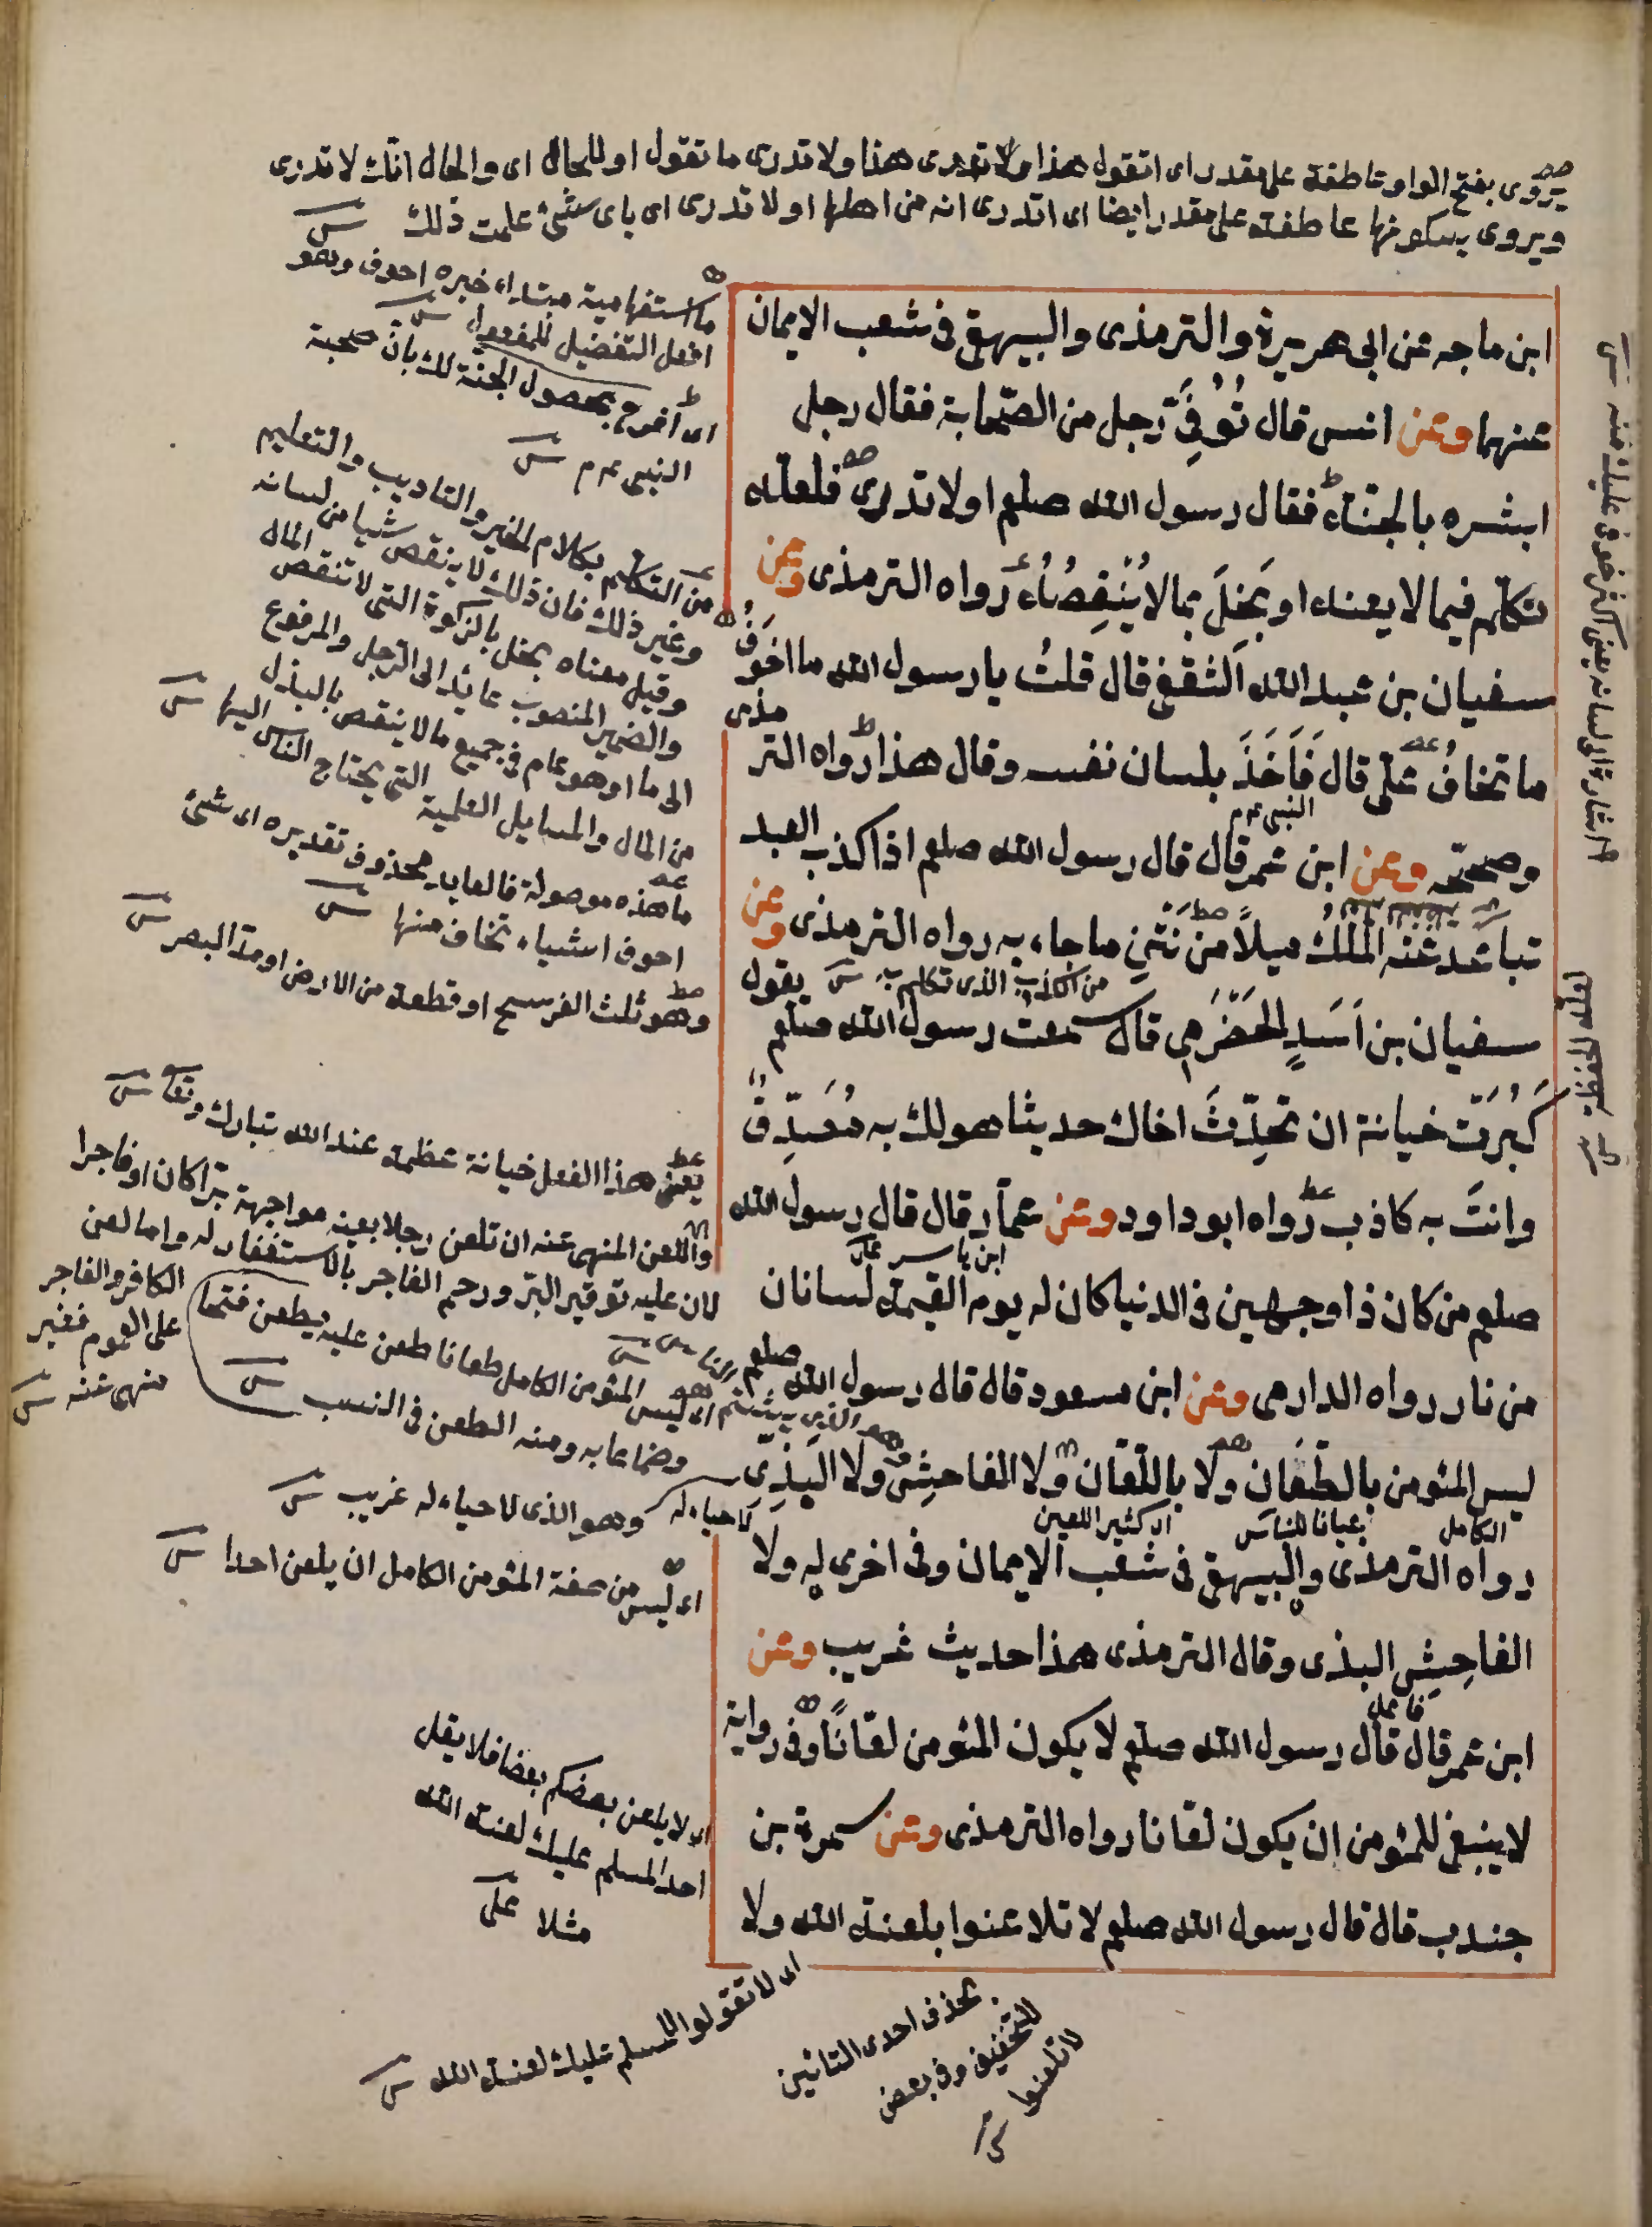 يروى بفتح الواو عاطفة على مقدر اى اتقول هذا ولا تدرى هذا ولا تدرى ما تقول او للحال اى والحال انك لا تدرى
ويروى بسكونها عاطفة على مقدر ايضا اى اتدرى انه من اهلها او لا تدرى اى باى شئ علمت ذلك
ابن ماجه عن ابى هريرة والترمذى والبيهقى فى شعب الايمان
عنهما وعن انس قال تُوُفِّىَ رجل من الصحابة فقال رجل
ابشره بالجنة فقال رسول الله صلعم اولا تدرى فلعله
تكلم فيما لا يعنيه او بَخِلَ بما لا يُنْقِصُهُ رواه الترمذى وعن
سفيان بن عبد الله الثقفى قال قلتُ يا رسول الله ما اخوفُ
ما تخافُ علىّ قال فَاَخَذَ بلسان نفسه وقال هذا رواه الترمذى
النبى عم
وصححه وعن ابن عمر قال قال رسول الله صلعم اذا كذب العبد
تباعد عنه المَلَكُ ميلاً من نَتْنِ ما جاء به رواه الترمذى وعن
من الكذب الذى تكلم به
سفيان بن اَسَدٍ الحَضْرَمى قال سمعت رسول الله صلعم يقول
كَبُرَتْ خيانة ان تحدِّثَ اخاك حديثا هو لك به مُصَدِّقٌ
وانتَ به كاذب رواه ابو داود وعن عمار قال قال رسول الله
ابن ياسر
صلعم من كان ذا وجهين فى الدنيا كان له يوم القيمة لسانان
من نار رواه الدارمى وعن ابن مسعود قال قال رسول الله صلعم
ليس المئومن بالطعان ولا باللعان ولا الفاحش ولا البذى
الكامل
عيابا للناس
اى كثير اللعن
لا حياء له
رواه الترمذى والبيهقى فى شعب الايمان وفى اخرى له ولا
الفاحِشِ البذى وقال الترمذى هذا حديث غريب وعن
ابن عمر قال قال رسول الله صلعم لا يكون المئومن لعّانًا وفى رواية
لا ينبغى للمئومن ان يكون لعانا رواه الترمذى وعن سمرة بن
جندب قال قال رسول الله صلعم لا تلاعنوا بلعنة الله ولا
ما استفهامية مبتداء خبره اخوف وهو
افعل التفضيل للمفعول
اى افرح بحصول الجنة لك بان صحبة
النبى عم
من التكلم بكلام الخير والتاديب والتعليم
وغير ذلك فان ذلك لا ينقص شيا من لسانه
وقيل معناه بخل بالزكوة التى لا تنقص المال
والضمير المنصوب عائد الى الرجل والمرفوع
الى ما او هو عام فى جميع ما لا ينقص بالبذل
من المال والمسايل العلمية التى يحتاج الناس اليها
ما هذه موصولة فالعايد محذوف تقديره اى شئ
اخوف اشياء تخاف منها
وهو ثلث الفرسخ او قطعة من الارض او مد البصر
يعنى هذا الفعل خيانة عظمة عند الله تبارك وتعا
واللعن المنهى عنه ان تلعن رجلا بعينه مواجهة برا كان او فاجرا
لان عليه توقير البر ورحم الفاجر بالاستغفار له واما لعن
الكافر والفاجر
على العموم فغير
منهى عنه
اى ليس المئومن الكامل طعانا طعن عليه يطعن فتحا
وضما عابه ومنه الطعن فى النسب
وهو الذى لا حياء له غريب
اى ليس من صفة المئومن الكامل ان يلعن احدا
اى لا يلعن بعضكم بعضا فلا يقل
احد المسلم عليك لعنة الله
مثلا على
اى لا تقولوا المسلم عليك لعنة الله
بحذف احدى التائين
للتخفيف وفى بعض
لا تلعنوا